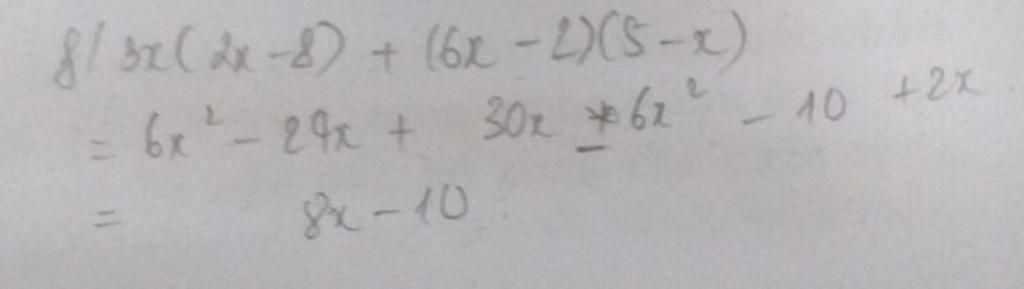 g/ 3x(2x-8) + (6x-2)(5-x)
= 6x² - 24x + 30x - 6x² - 10 + 2x
= 8x-10